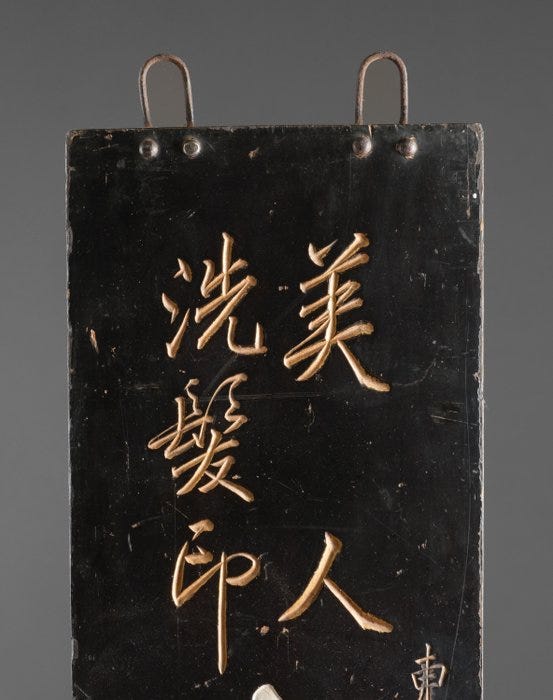 美人
洗髮印